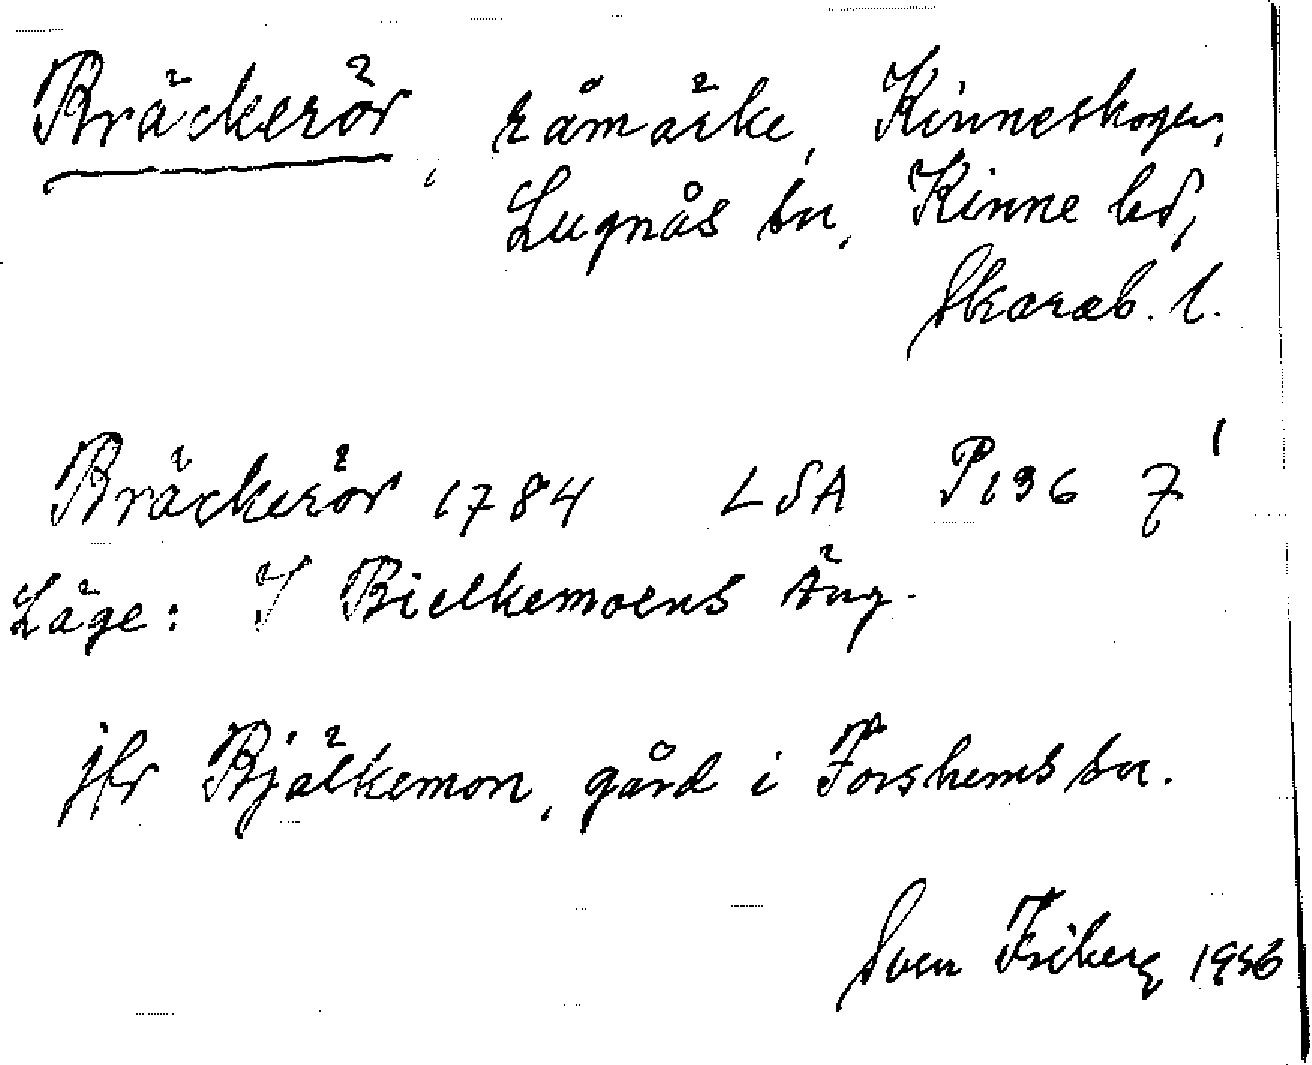 Bräckerör, råmärke, Kinneskogen,
Lugnås sn, Kinne hd,
Skarab. l.
Bräckerör 1784 LSA P136 7¹
Läge: I Bielkemoens äng.
jfr Bjälkemon, gård i Forshems sn.
Sven Friberg 1956